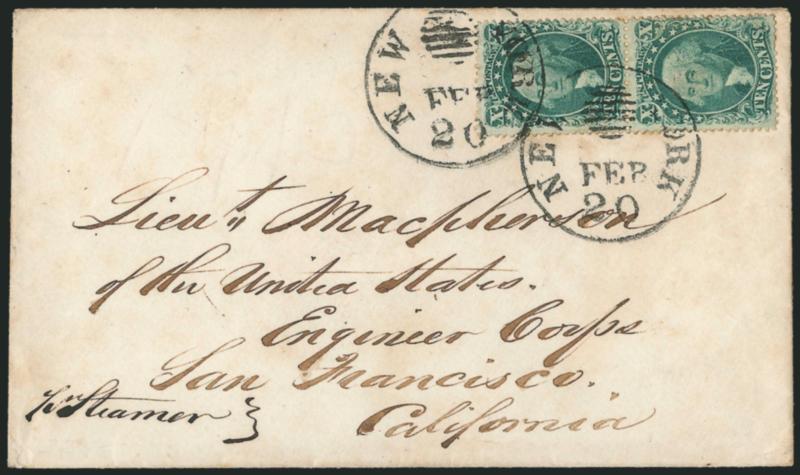 NEW YORK
FEB
20
NEW YORK
FEB
20
X TEN CENTS X
X TEN CENTS X
Lieut. Macpherson
of the United States.
Engineer Corps
San Francisco.
California
pr Steamer